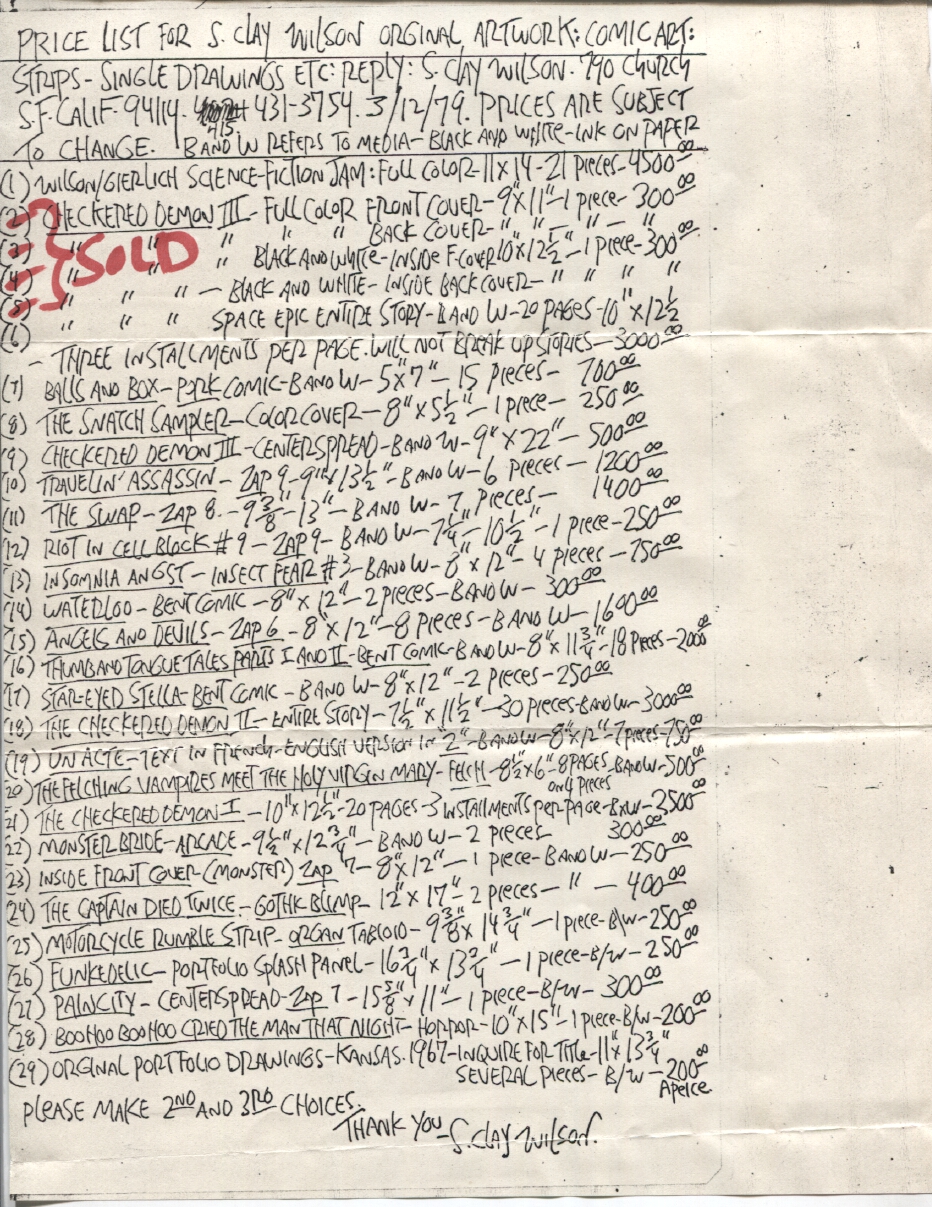 PRICE LIST FOR S. CLAY WILSON ORGINAL ARTWORK: COMIC ART:
STRIPS - SINGLE DRAWINGS ETC: REPLY: S. CLAY WILSON. 790 CHURCH
S.F. CALIF. 94114. 415 431-3754. 3/12/79. PRICES ARE SUBJECT
TO CHANGE. B AND W REFERS TO MEDIA - BLACK AND WHITE - INK ON PAPER
(1) WILSON/GIERLICH SCIENCE-FICTION JAM: FULL COLOR - 11 X 14 - 21 PIECES - 4500.00
(2) CHECKERED DEMON III - FULL COLOR FRONT COVER - 9" X 11" - 1 PIECE - 300.00
(3) " " " " " BACK COVER - " " " - " - "
(4) " " " BLACK AND WHITE - INSIDE F-COVER 10" X 12 1/2" - 1 PIECE - 300.00
(5) " " " - BLACK AND WHITE - INSIDE BACK COVER - " " " " "
SOLD
(6) " " " SPACE EPIC ENTIRE STORY - B AND W - 20 PAGES - 10" X 12 1/2
- THREE INSTALLMENTS PER PAGE. WILL NOT BREAK UP STORIES - 3000.00
(7) BALLS AND BOX - PORK COMIC - B AND W - 5" X 7" - 15 PIECES - 700.00
(8) THE SNATCH SAMPLER - COLOR COVER - 8" X 5 1/2" - 1 PIECE - 250.00
(9) CHECKERED DEMON III - CENTERSPREAD - B AND W - 9" X 22" - 500.00
(10) TRAVELIN' ASSASSIN - ZAP 9 - 9" X 13 1/2" - B AND W - 6 PIECES - 1200.00
(11) THE SWAP - ZAP 8. - 9 3/8" - 13" - B AND W - 7 PIECES - 1400.00
(12) RIOT IN CELL BLOCK # 9 - ZAP 9 - B AND W - 7 1/4" - 10 1/2" - 1 PIECE - 250.00
(13) INSOMNIA ANGST - INSECT FEAR # 3 - B AND W - 8" X 12" - 4 PIECES - 750.00
(14) WATERLOO - BENT COMIC - 8" X 12" - 2 PIECES - B AND W - 300.00
(15) ANGELS AND DEVILS - ZAP 6 - 8" X 12" - 8 PIECES - B AND W - 1600.00
(16) THUMB AND TONGUE TALES PARTS I AND II - BENT COMIC - B AND W - 8" X 11 3/4" - 18 PIECES - 2000.00
(17) STAR-EYED STELLA - BENT COMIC - B AND W - 8" X 12" - 2 PIECES - 250.00
(18) THE CHECKERED DEMON II - ENTIRE STORY - 7 1/2" X 11 1/2" - 30 PIECES - B AND W - 3000.00
(19) UN ACTE - TEXT IN FRENCH - ENGLISH VERSION IN "2" - B AND W - 8" X 12" - 7 PIECES - 750.00
20) THE FELCHING VAMPIRES MEET THE HOLY VIRGIN MARY - FELCH - 8 1/2" X 6" - 8 PAGES - B AND W - 500.00
ON 4 PIECES
21) THE CHECKERED DEMON I - 10" X 12 1/2" - 20 PAGES - 3 INSTALLMENTS PER PAGE - B&W - 3500.00
(22) MONSTER BRIDE - ARCADE - 9 1/2" X 12 3/4" - B AND W - 2 PIECES 300.00
23) INSIDE FRONT COVER (MONSTER) ZAP 7 - 8" X 12" - 1 PIECE - B AND W - 250.00
(24) THE CAPTAIN DIED TWICE - GOTHIK BLIMP - 12" X 17" - 2 PIECES - " - 400.00
(25) MOTORCYCLE RUMBLE STRIP - ORGAN TABLOID - 9 3/8" X 14 3/4" - 1 PIECE - B/W - 250.00
(26) FUNKEDELIC - PORTFOLIO SPLASH PANEL - 16 3/4" X 13 3/4" - 1 PIECE - B/W - 250.00
(27) PALNCITY - CENTERSPREAD - ZAP 7 - 15 5/8" X 11" - 1 PIECE - B/W - 300.00
(28) BOO HOO BOO HOO CRIED THE MAN THAT NIGHT - HORROR - 10" X 15" - 1 PIECE - B/W - 200.00
(29) ORGINAL PORTFOLIO DRAWINGS - KANSAS. 1967 - INQUIRE FOR TITLE - 11" X 13 3/4"
SEVERAL PIECES - B/W - 200.00
APEICE
PLEASE MAKE 2ND AND 3RD CHOICES.
THANK YOU - S. CLAY WILSON.